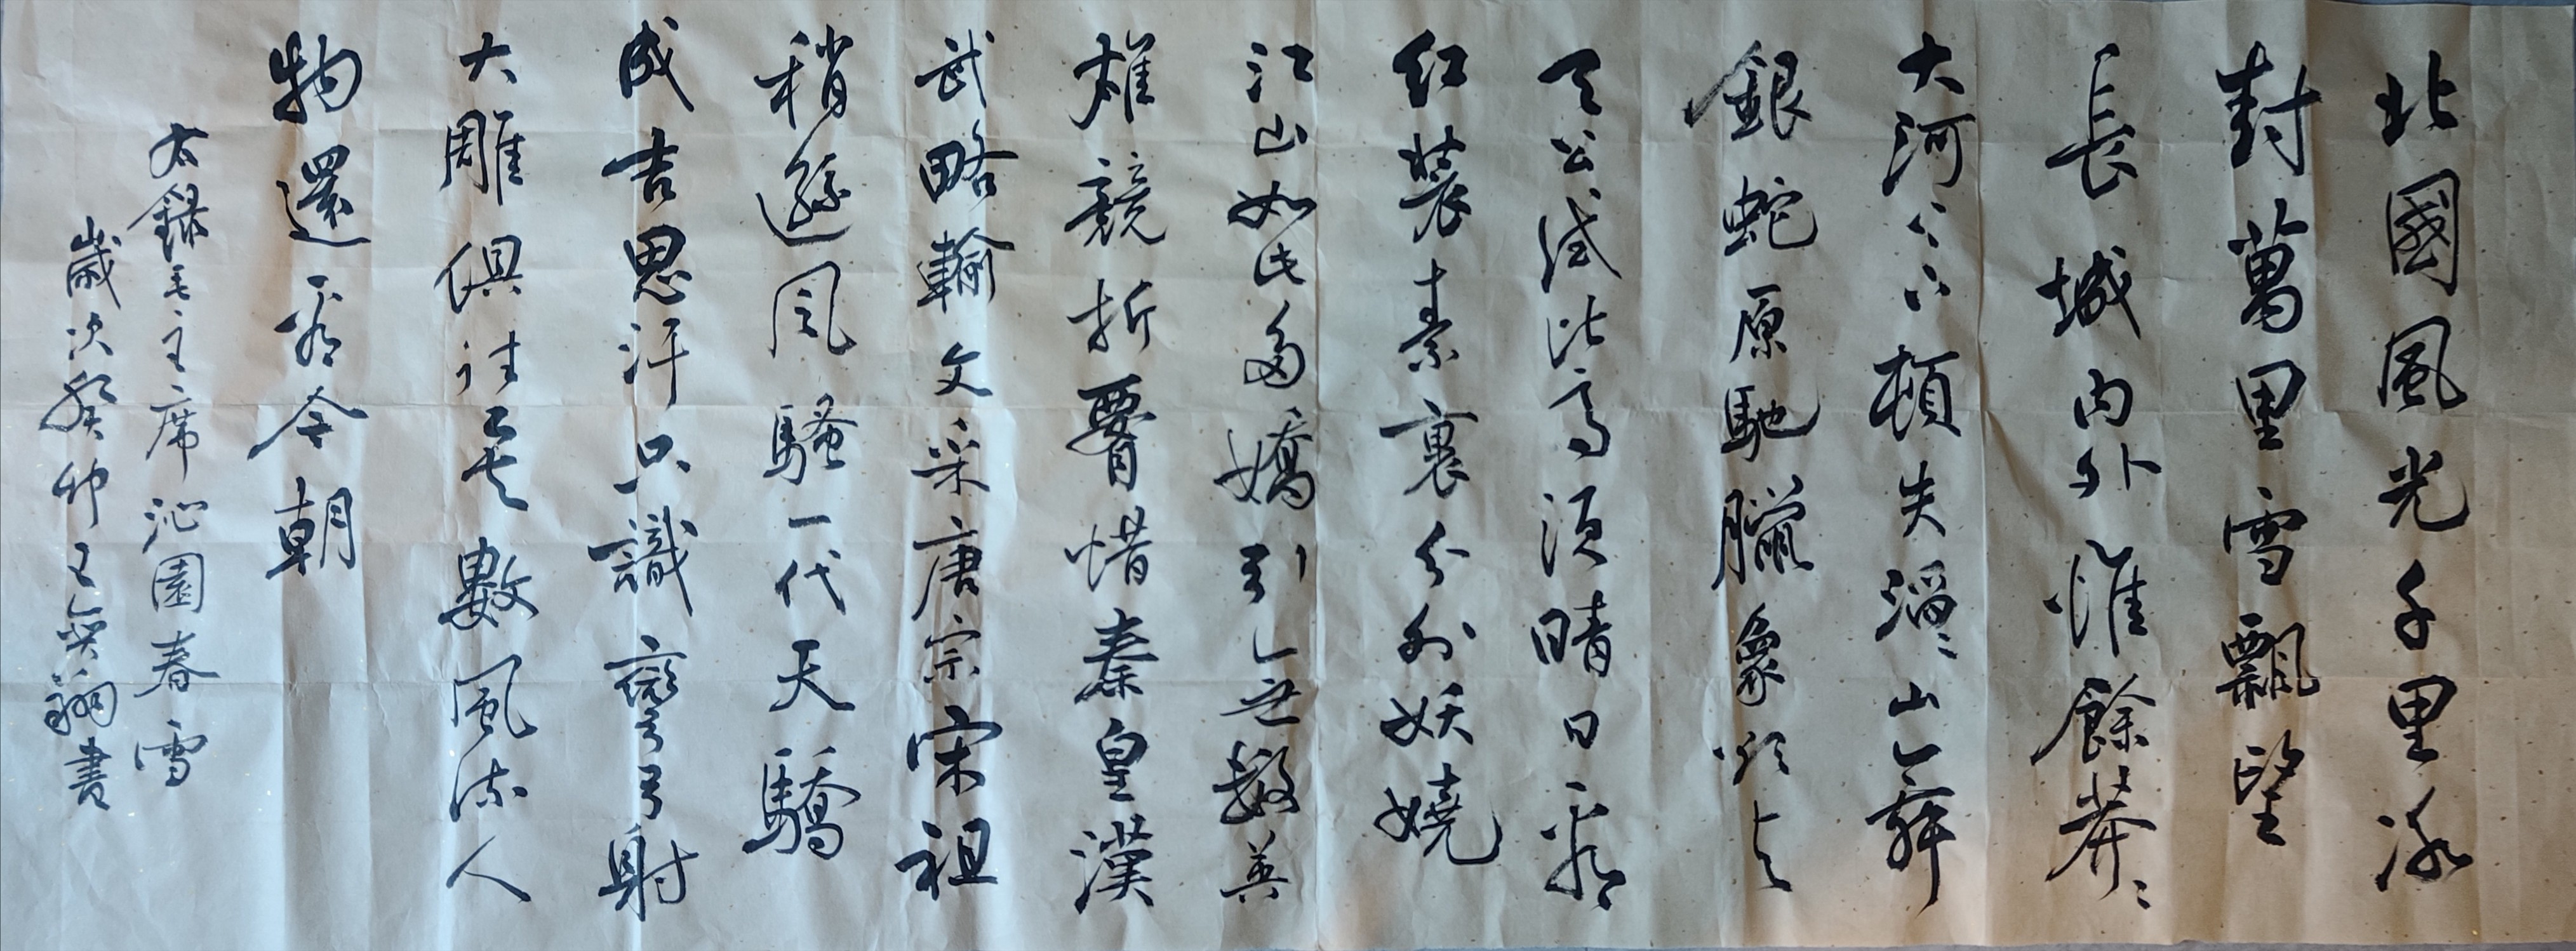 北國風光千里冰
封萬里雪飄望
長城內外惟餘莽〻
大河上下頓失滔〻山舞
銀蛇原馳臘象欲与
天公試比高須晴日看
紅裝素裹分外妖嬈
江山如此多嬌引無數英
雄競折腰惜秦皇漢
武略輸文采唐宗宋祖
稍遜風騷一代天驕
成吉思汗只識彎弓射
大雕俱往矣數風流人
物還看今朝
右錄毛主席沁園春雪
歲次癸卯王翔書